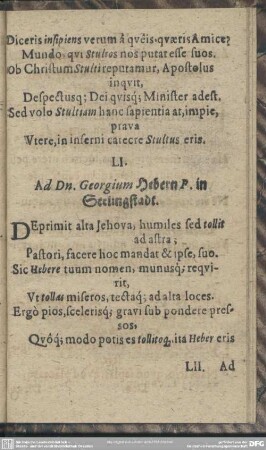 Diceris insipiens verum à qvêis-qværis Amice?
Mundo: qvi Stultos nos putat esse suos.
Ob Christum Stulti reputamur, Apostolus
inqvit,
Despectusq; Dei qvisq; Minister adest.
Sed volo Stultitiam hanc sapientia at, impie,
prava
Vtere, in inferni carcere Stultus eris.
LI.
Ad Dn. Georgium Hebern P. in
Seelingstadt.
DEprimit alta Jehova, humiles sed tollit
ad astra;
Pastori, facere hoc mandat & ipse, suo.
Sic Hebere tuum nomen, munusq; reqvi-
rit,
Vt tollas miseros, tectaq; ad alta loces.
Ergò pios, scelerisq; gravi sub pondere pres-
sos,
Qvôq; modo potis es tollitoq, ita Heber eris
LII. Ad